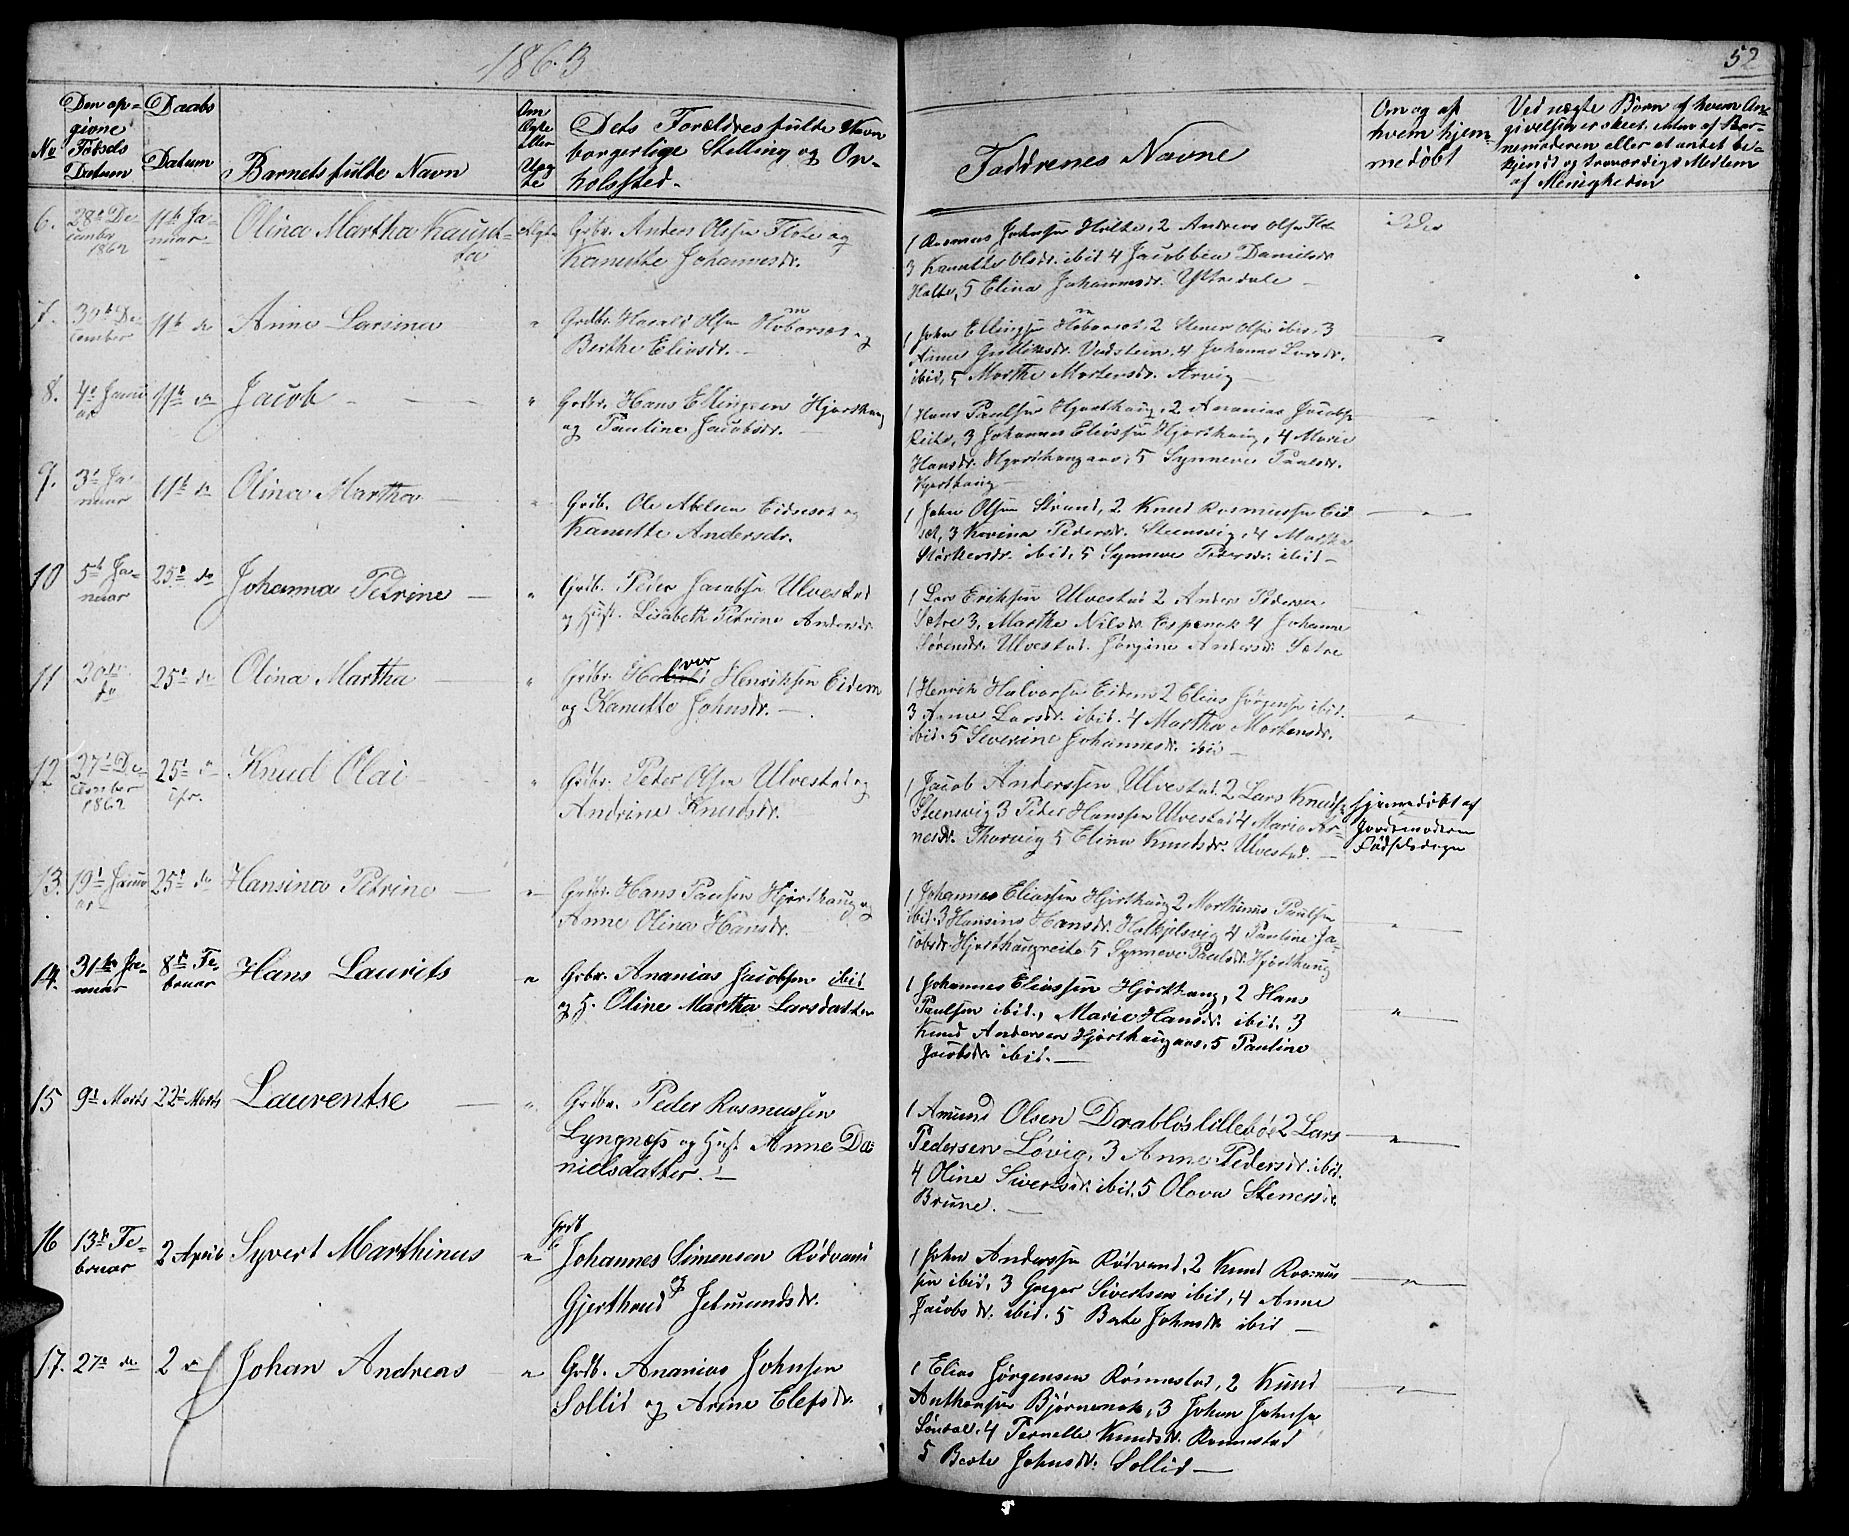 1863
52
No
Den op-
givne
Fødsels
Datum
Daabs
Datum
Barnets fulde Navn
Om
Ægte
eller
Uæg
te
Dets Forældres fulde Navn
borgerlige Stilling og Op-
holdssted.
Faddrenes Navne
Om og af
hvem hjem-
medøbt
Ved uægte Børn af hvem An-
givelsen er skeet, enten af Bar-
nemoderen eller et andet be-
kjendt og troværdigt Medlem
af Menigheden
6. 28de De-
cember
1862
11te Ja-
nuar
Olina Martha Kanut-
ta
Ægte
Grbr. Anders Olsen Flote og
Kanutte Johannesdr.
1 Rasmus Johnsen Holte, 2 Andreas Olsen Flote
3 Kanutte Olsdr. ibid 4 Jacobbea Danielsdr
Holte, 5 Elina Johannesdr. Yttredale
7. 30te De-
cember
11te do
Anne Larsina
"
Grdbr. Harald Olsen
Berthe Eliasdr.
1 John Ellingsen 2 Stener Olsen ibid, 3
Anne Vadstein, 4 Johanne Larsdr.
ibid, 5 Marthe Mortensdr. Arvig
8. 4de Janu
ar
11te do
Jacob
"
Grdbr. Hans Ellingsen Hjorthaug
og Pauline Jacobsdr.
1 Hans Paulsen Hjorthaug, 2 Ananias Jacobsen
Reite, 3 Johannes Eliassen Hjorthaug, 4 Marie
Hansdr. Hjorthaugaas, 5 Synneve Paulsdr.
Hjorthaug
9. 3de Ja-
nuar
11te do
Olina Martha
"
Grdb. Ole Abelsen Eidesæt og
Kanutte Andersdr.
1 John Olsen Strand, 2 Knud Rasmussen Eid
sæt, 3 Pedersdr. Steensvig, 4 Martha
Størkersdr. ibid, 5 Synneve Petersdr. ibid
10 5te Ja-
nuar
25de do
Johanna Petrine
"
Grdb. Peder Jacobsen Ulvestad
og Hust. Lisabeth Petrine Andersdr.
1 Lars Eriksen Ulvestad 2 Anders Pedersen
Sætre 3. Marthe Nilsdr. Espenak 4 Johanne
Sørensdr. Ulvestad. Jørgine Andersdr. Sætre
11 20de
do
25de do
Olina Martha
"
Grdbr. Halvor Henriksen Eidem
og Kanutte Johnsdr.
1 Henrik Halvorsen Eidem 2 Elias Jørgensen ibid.
3 Anne Larsdr. ibid. 4 Martha Mortensdr.
ibid. 5 Severine Johannesdr. ibid
12 27de De-
cember
1862
25de do
Knud Olai
"
Grdbr. Peter Olsen Ulvestad og
Andrine Knudsdr.
1 Jacob Anderssen Ulvestad. 2 Lars Knudsen
Steensvig 3 Peter Hanssen Ulvestad 4 Marie Ar-
nesdr. Thorvig 5 Elina Knudsdr. Ulvestad.
Hjemmedøbt af
Jordemoderen
Fødselsdagen
13. 19de Janu
ar
25de do
Hansina Petrine
"
Grdbr. Hans Paulsen Hjorthaug og
Anne Olina Hansdr.
1 Johannes Eliassen Hjorthaug 2 Marthinus Paulsen
ibid. 3 Hansine Hansdr. Holkjelsvig 4 Pauline Ja-
cobsdr. Hjorthaugreite 5 Synneve Paulsdr. Hjorthaug
14. 31te Ja-
nuar
8de Fe-
bruar
Hans Laurits
"
Grbr. Ananias Jacobsen ibid
og H. Oline Martha Larsdatter
1 Johannes Eliassen Hjorthaug, 2 Hans
Paulsen ibid., Marie Hansdr. ibid. 3
Knud Andersen Hjorthaugaas, 5 Pauline
Jacobsdr. ibid.
15 9de Marts
22de Marts
Laurentse
"
Grdbr. Peder Rasmussen
Lyngnæs og Hust. Anne Da
nielsdatter.
1 Amund Olsen Drabløslillebøe 2 Lars
Pedersen Løvig, 3 Anne Pedersdr. ibid.
4 Oline Sivertsdr. ibid. 5 Olava Stenersdr.
Brune.
16 13de Fe-
bruar
2 April
Syvert Marthinus
"
Grdb
Johannes Simensen Rødvand
og
Gjerthrud Jetmundsdr.
1 John Anderssen Rødvand, 2 Knud Rasmus
sen ibid, 3 Greger Sivertsen ibid, 4 Anne
Jacobsdr. ibid. 5 Berte Johnsdr ibid
17. 27de do
2 do
Johan Andreas
"
Grdb. Ananias Johnsen
Sollid og Anne Elefsdr.
1 Elias Jørgensen Rønnestad, 2 Knud
Anthonsen Bjørnenak, 3 Johan Johnsen
4 Pernelle Knudsdr. Rønnestad
5 Berte Johnsdr. Sollid